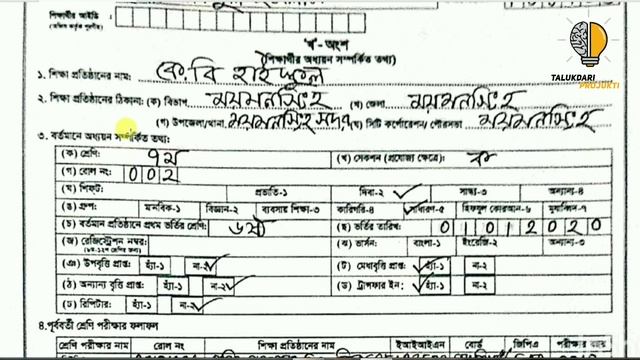 শিক্ষার্থীর আইডি
TALUKDARI
PROJUKTI
'খ'- অংশ
(শিক্ষার্থীর অধ্যয়ন সম্পর্কিত তথ্য)
১. শিক্ষা প্রতিষ্ঠানের নাম: কে.বি হাইস্কুল
২. শিক্ষা প্রতিষ্ঠানের ঠিকানা: (ক) বিভাগ ময়মনসিংহ (খ) জেলা ময়মনসিংহ
(গ) উপজেলা/থানা ময়মনসিংহ সদর (ঘ) সিটি কর্পোরেশন / পৌরসভা ময়মনসিংহ
৩. বর্তমানে অধ্যয়ন সম্পর্কিত তথ্য:
(ক) শ্রেণি: ৭ম (খ) সেকশন (প্রযোজ্য ক্ষেত্রে): ক
(গ) রোল নং: 002
(ঘ) শিফ্ট: প্রভাতি-১ দিবা-২ ✓ সান্ধ্য-৩ অন্যান্য-৪
(ঙ) গ্রুপ: মানবিক-১ বিজ্ঞান-২ ব্যবসায় শিক্ষা-৩ কারিগরি-৪ সাধারণ-৫ হিফজুল কোরআন-৬ মুযাব্বিদ-৭
(চ) বর্তমান প্রতিষ্ঠানে প্রথম ভর্তির শ্রেণি: ৬ষ্ঠ (ছ) ভর্তির তারিখ: 01012020
(জ) রেজিস্ট্রেশন নম্বর: (ঝ) ভার্সন: বাংলা-১ ইংরেজি-২ অন্যান্য-৩
(ঞ) উপবৃত্তি প্রাপ্ত: হ্যাঁ-১ না-২ ✓ (ট) মেধাবৃত্তি প্রাপ্ত: ✓ হ্যাঁ-১ না-২
(ঠ) অন্যান্য বৃত্তি প্রাপ্ত: হ্যাঁ-১ না-২ ✓ (ড) ট্রান্সফার ইন: ✓ হ্যাঁ-১ না-২
(ঢ) রিপিটার: হ্যাঁ-১ না-২ ✓
৪.পূর্ববর্তী শ্রেণি পরীক্ষার ফলাফল
শ্রেণি পরীক্ষার নাম রোল নং শিক্ষা প্রতিষ্ঠানের নাম ইআইআইএন বোর্ড জিপিএ পরীক্ষার